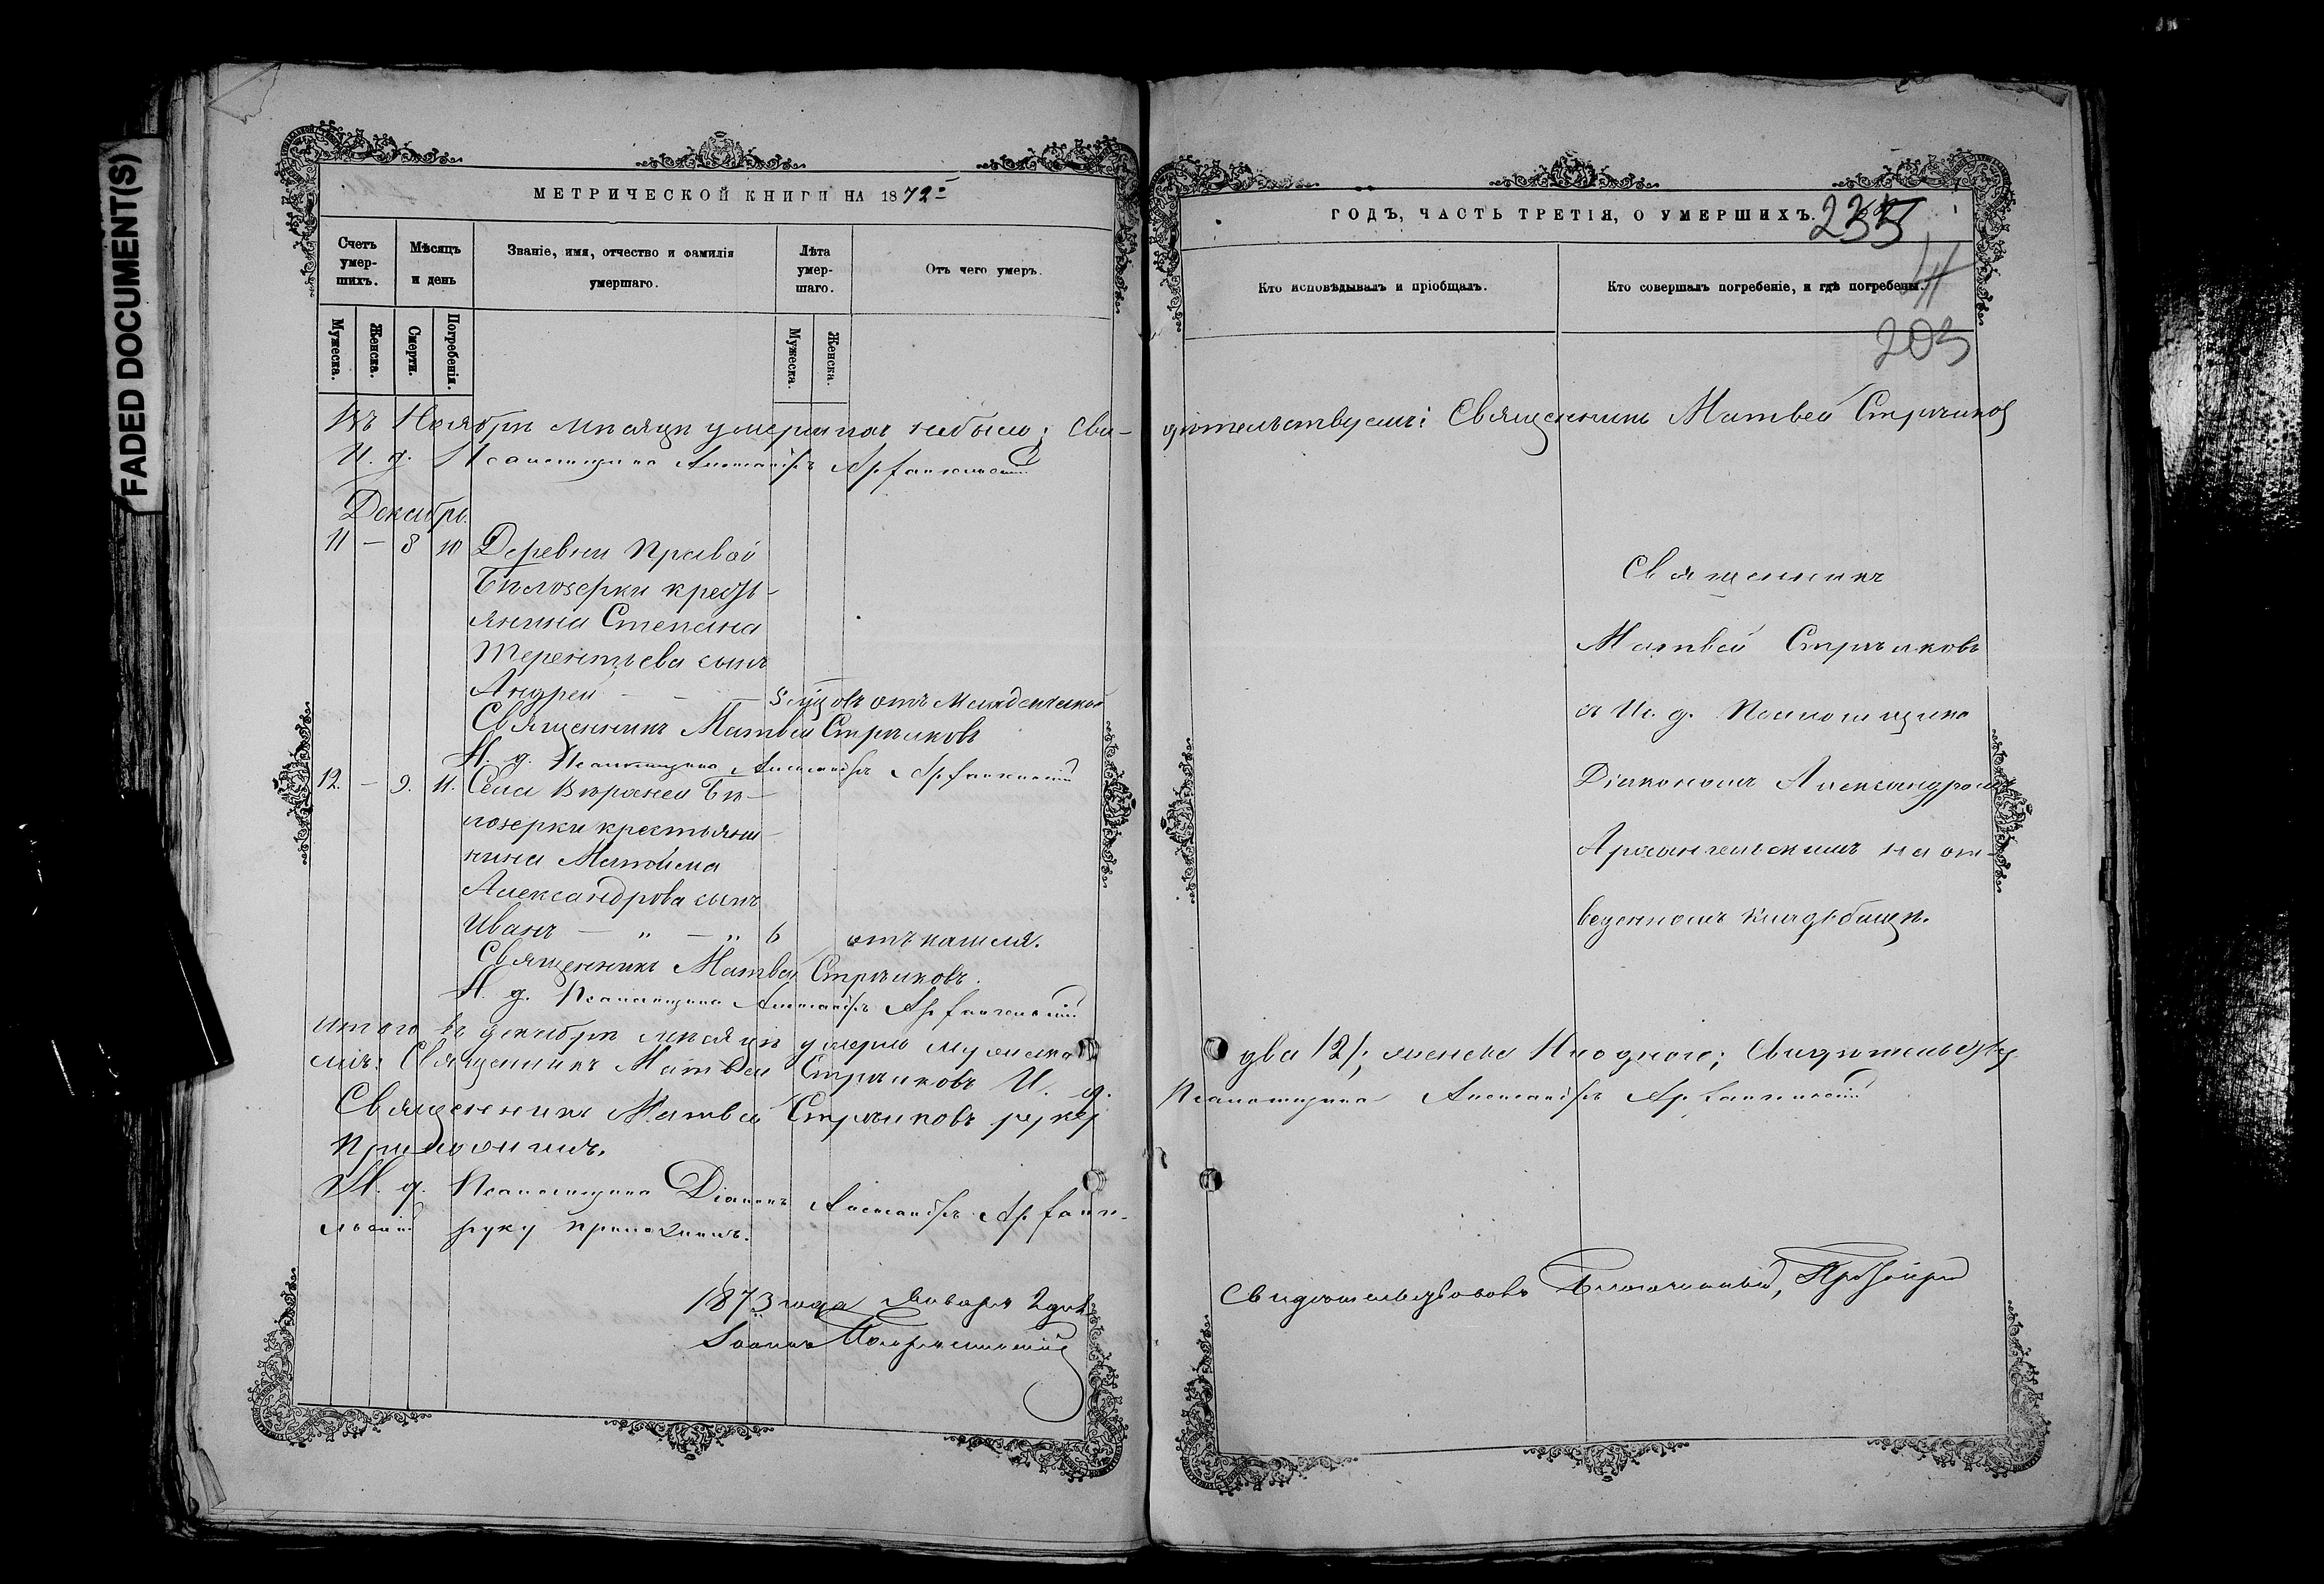 FADED DOCUMENT(S)
МЕТРИЧЕСКОЙ КНИГИ НА 1872 й
Счетъ умер-шихъ.
Мѣсяцъ и день
Званіе, имя, отчество и фамилія умершаго.
Лѣта умер-шаго.
Отъ чего умеръ.
Мужеска.
Женска.
Смерти.
Погребенія.
Мужеска.
Женска.
Въ Ноябрѣ мѣсяцѣ умершихъ небыло; Сви-
И. д. Псаломщика Александръ Архангельскій
Декабрь
11 — 8 10 Деревни Правой
Бѣлозерки кресть-
янина Степана
Терентьева сынъ
Андрей — — 
отъ младенческой
Священникъ Матвей Стрѣлковъ
И. д. Псаломщика Александръ Архангельскій
12. — 9. 11. Села Верхней Бѣ-
лозерки крестьяни-
нина
Александрова сынъ
Иванъ — „ — „ 6 отъ кашля.
Священникъ Матвей Стрѣлковъ.
И. д. Псаломщика Александръ Архангельскій
Итого въ декабрѣ мѣсяцѣ умерло мужеска
мъ: Священникъ Матвей Стрѣлковъ И. д.
Священникъ Матвей Стрѣлковъ руку
приложилъ.
И. д. Псаломщика Діаконъ Александръ Архан-
льскій руку приложилъ.
1873 года Января 2 дня
Іоаннъ
ГОДЪ, ЧАСТЬ ТРЕТІЯ, О УМЕРШИХЪ.
235
41
203
Кто исповѣдывалъ и пріобщалъ.
Кто совершалъ погребеніе, и гдѣ погребены.
дѣтельствуемъ: Священникъ Матвей Стрѣлковъ
Священникъ
Матвей Стрѣлковъ
съ И. д. Псаломщика
Діакономъ Александромъ
Архангельскимъ на от-
веденномъ кладбищѣ.
два /2/; женска ни одного; Свидѣтельству
Псаломщика Александръ Архангельскій
Свидѣтельствовалъ Благочинный,